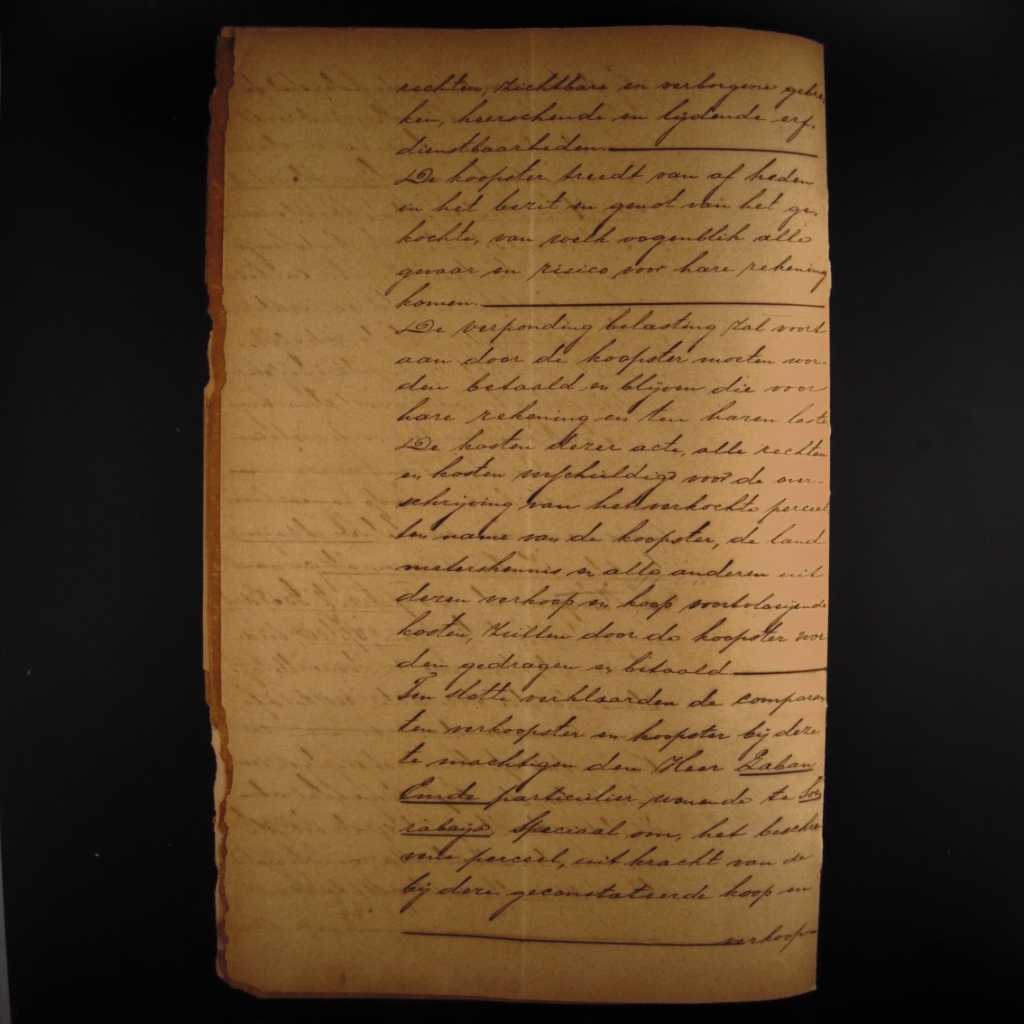 rechten, zichtbare en verborgene gebre-
ken, heerschende en lijdende erf-
dienstbaarheden.
De koopster treedt van af heden
in het bezit en genot van het ge-
kochte, van welk oogenblik alle
gevaar en risico voor hare rekening
komen.
De verponding belasting zal voort
aan door de koopster moeten wor-
den betaald en blijven die voor
hare rekening en ten haren laste
De kosten dezer acte, alle rechten
en kosten verschuldigd voor de over-
schrijving van het verkochte perceel
ten name van de koopster, de land
meterskennis en alle anderen uit
dezen verkoop en koop voortvloeijende
kosten, zullen door de koopster wor
den gedragen en betaald
Ten slotte verklaarden de comparan
ten verkoopster en koopster bij deze
te machtigen den Heer
particulier wonende te Soe
rabaija, speciaal om, het beschre
vene perceel, uit kracht van de
bij deze geconstateerde koop en
verkoop